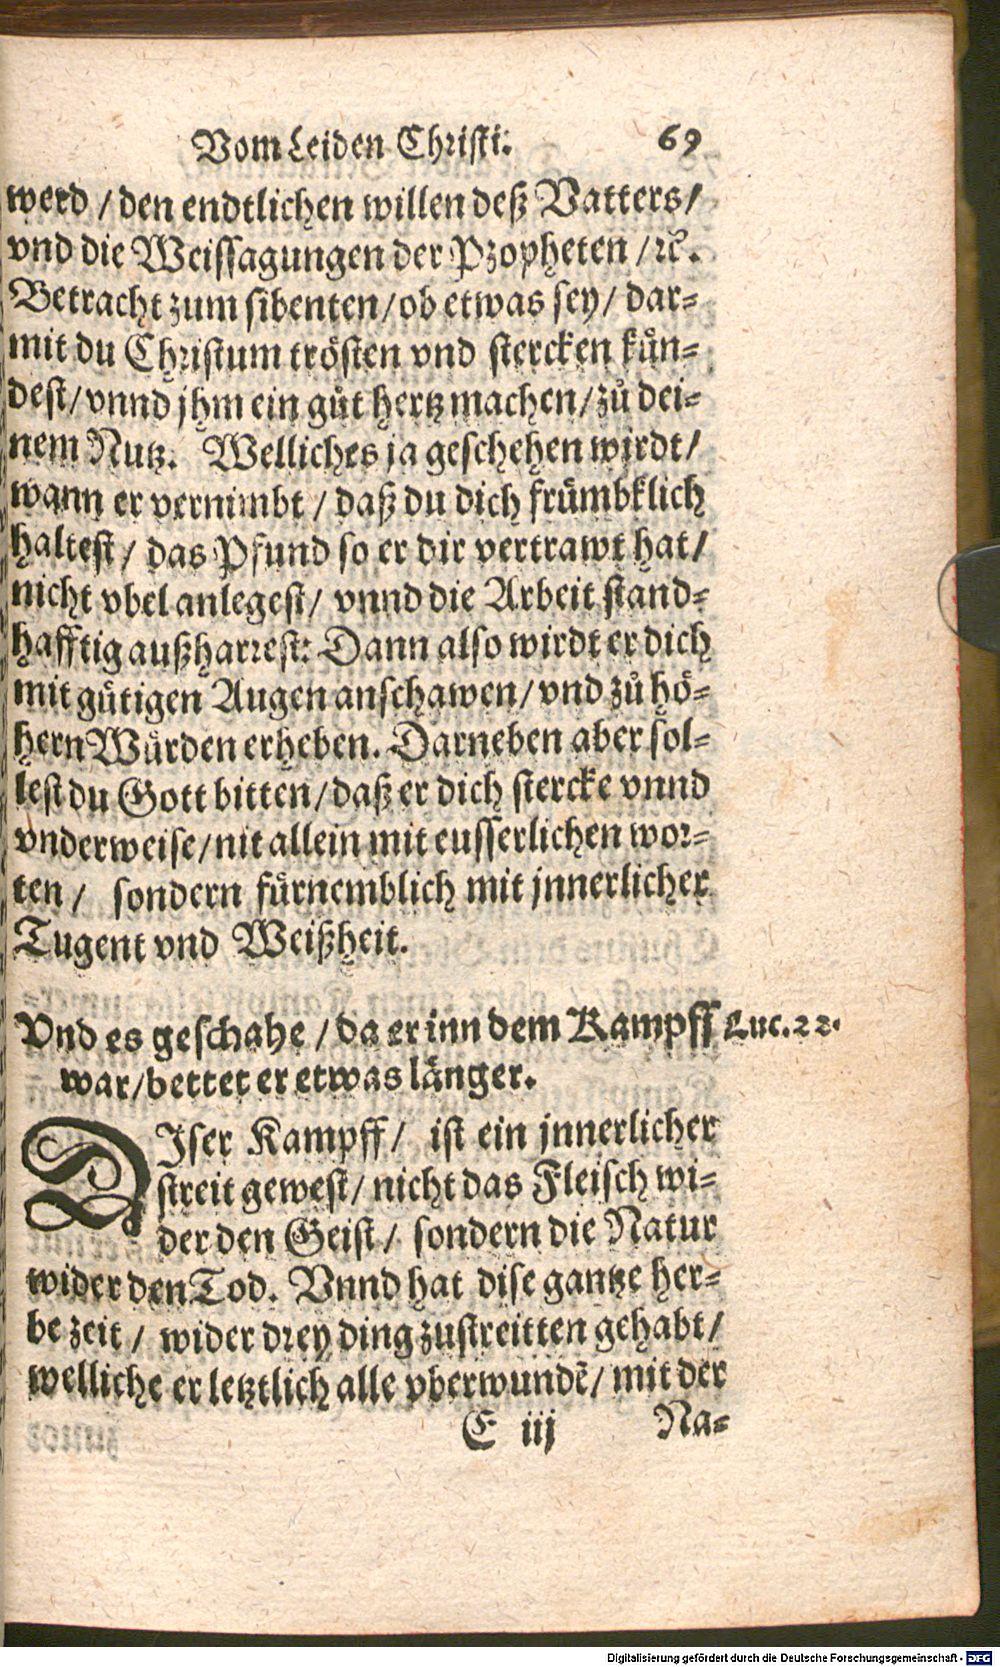 Vom Leiden Christi. 69
werd / den endtlichen willen deß Vatters /
vnd die Weissagungen der Propheten / ꝛc̃.
Betracht zum sibenten / ob etwas sey / dar⸗
mit du Christum trösten vnd stercken kün⸗
dest / vnnd jhm ein gůt hertz machen / zů dei⸗
nem Nutz. Welliches ja geschehen wirdt /
wann er vernimbt / daß du dich frümbklich
haltest / das Pfund so er dir vertrawt hat /
nicht vbel anlegest / vnnd die Arbeit stand⸗
hafftig außharrest: Dann also wirdt er dich
mit gütigen Augen anschawen / vnd zů hö⸗
hern Würden erheben. Darneben aber sol⸗
lest du Gott bitten / daß er dich stercke vnnd
vnderweise / nit allein mit eusserlichen wor⸗
ten / sondern fürnemblich mit jnnerlicher
Tugent vnd Weißheit.
Vnd es geschahe / da er inn dem Kampff Luc. 22.
war / bettet er etwas länger.
DIser Kampff / ist ein jnnerlicher
streit gewest / nicht das Fleisch wi⸗
der den Geist / sondern die Natur
wider den Tod. Vnnd hat dise gantze her⸗
be zeit / wider drey ding zustreitten gehabt /
welliche er letztlich alle vberwundẽ / mit der
E iij Na⸗
Digitalisierung gefördert durch die Deutsche Forschungsgemeinschaft - DFG